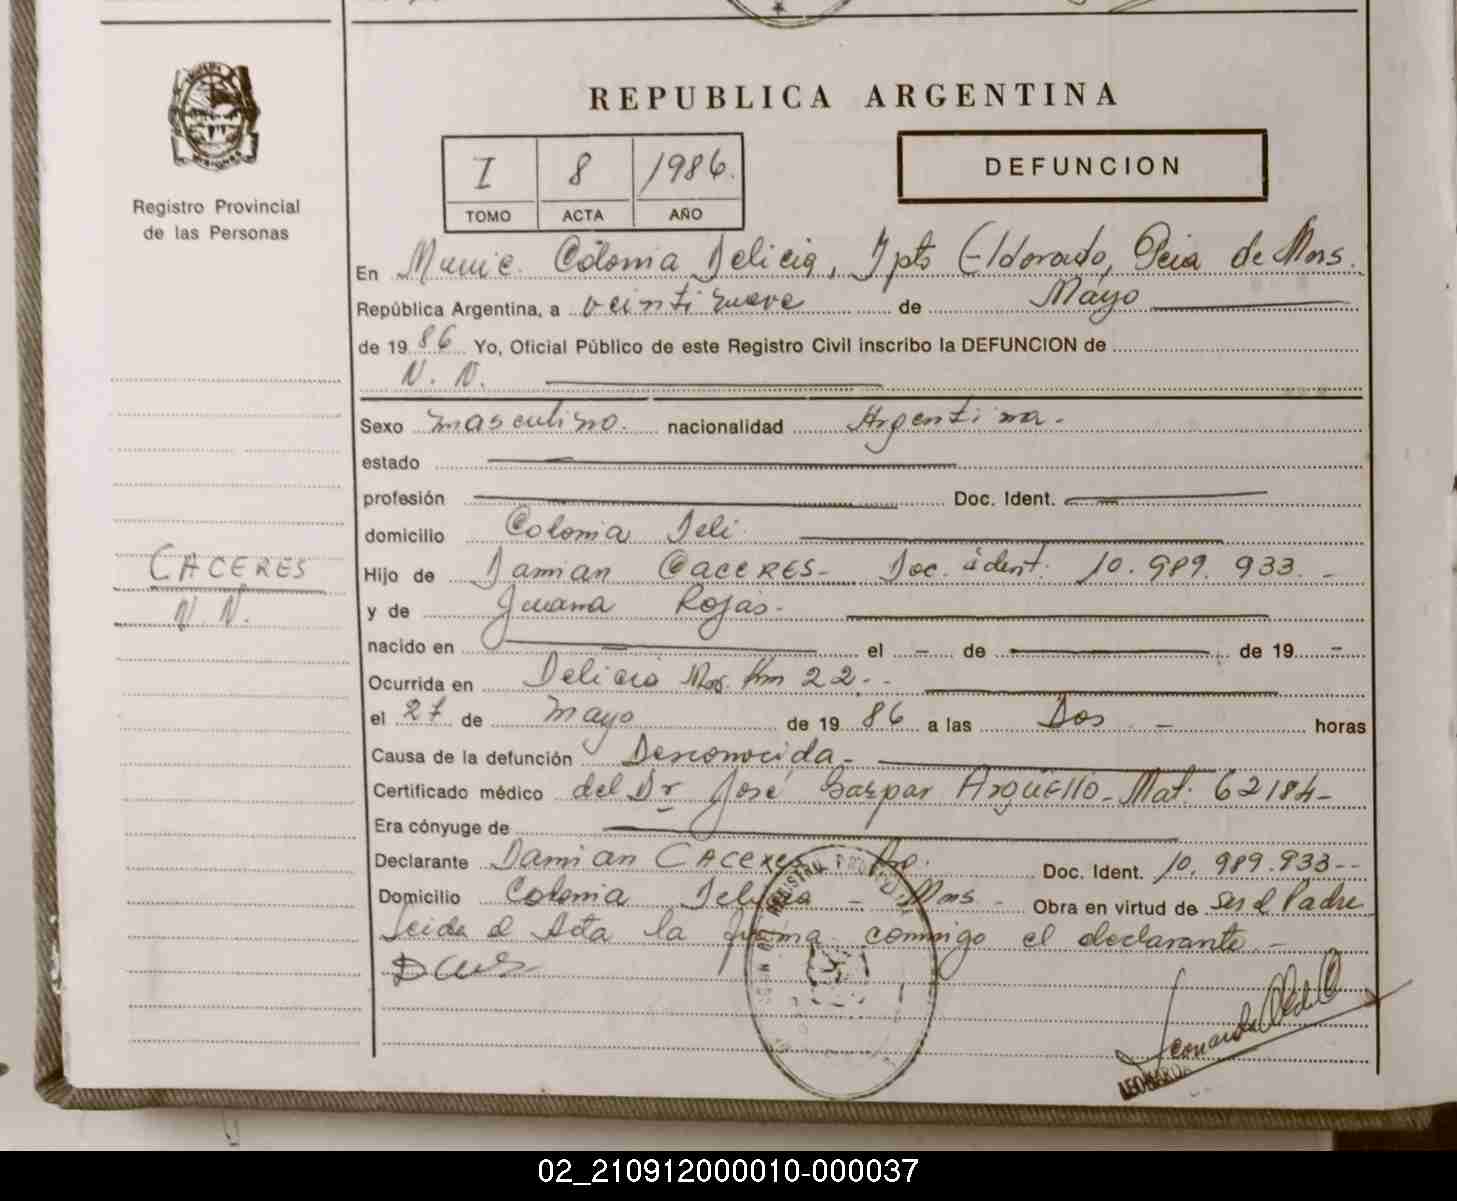 REPUBLICA ARGENTINA
MISIONES
Registro Provincial
de las Personas
I 8 1986.
TOMO ACTA AÑO
DEFUNCION
En Munic. Colonia Delicia, Dpto Eldorado, Pcia de Mns.
República Argentina, a veintinueve de Mayo
de 1986 Yo, Oficial Público de este Registro Civil inscribo la DEFUNCION de
N. N.
Sexo masculino. nacionalidad Argentina.
estado
profesión Doc. Ident.
domicilio Colonia Deli.
CACERES
N. N.
Hijo de Damian CACERES- Doc. ident. 10.989.933.-
y de Juana Rojas-
nacido en el - de de 19 -
Ocurrida en Delicia Mns. Km 22.-
el 27 de mayo de 1986 a las Dos - horas
Causa de la defunción Desconocida-
Certificado médico del Dr José Gaspar ArgüEllo- Mat. 62184-
Era cónyuge de
Declarante Damian CACERES Doc. Ident. 10.989.933--
Domicilio Colonia Delicia - Mns - Obra en virtud de Ser el Padre
Leida el Acta la firma conmigo el declarante-
LEONARDA
02_210912000010-000037